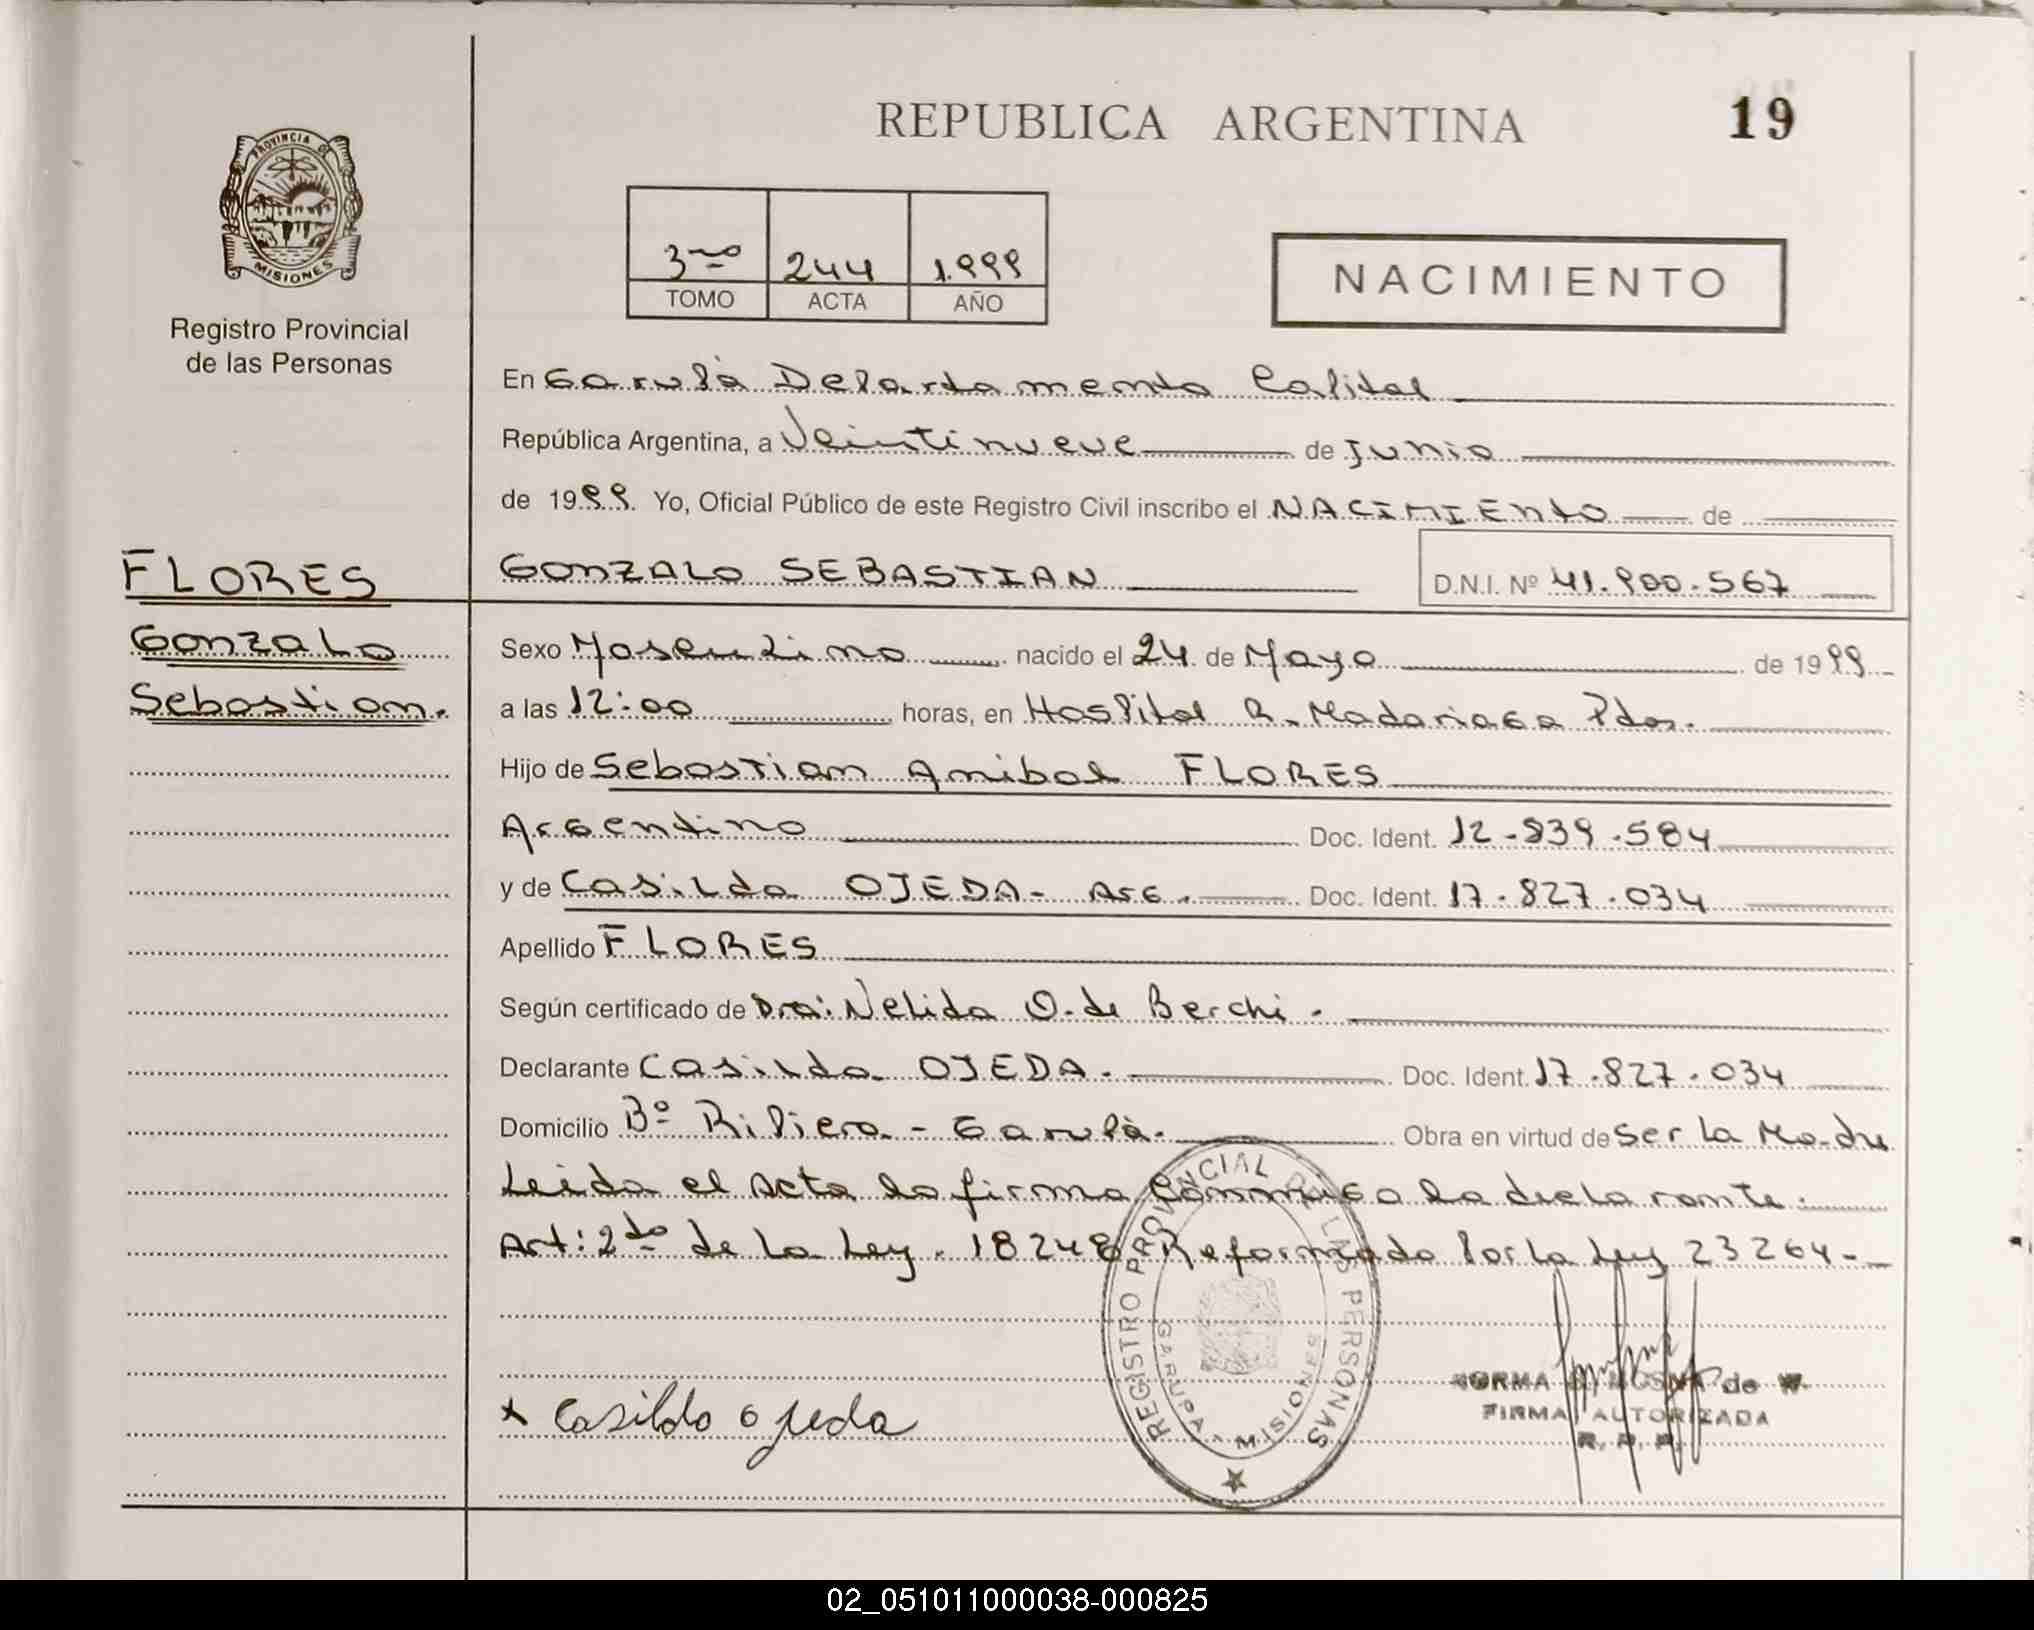 REPUBLICA ARGENTINA
19
PROVINCIA DE
MISIONES
Registro Provincial
de las Personas
3ro 244 1.999
TOMO ACTA AÑO
NACIMIENTO
En Garupà Departamento Capital
República Argentina, a Veintinueve de Junio
de 1999. Yo, Oficial Público de este Registro Civil inscribo el NACIMIENTO de
FLORES
GONZALO SEBASTIAN D.N.I. Nº 41.900.567
Gonzalo
Sexo Masculino nacido el 24 de Mayo de 1999
Sebastian.
a las 12:00 horas, en Hospital R. Madariaga Pdas.
Hijo de Sebastian Anibal FLORES
Argentino Doc. Ident. 12-839-584
y de Casilda OJEDA- Arg. Doc. Ident. 17.827.034
Apellido FLORES
Según certificado de Dra: Nelida O. de Berchi.
Declarante Casilda OJEDA. Doc. Ident. 17.827.034
Domicilio Bº Ripiera - Garupà. Obra en virtud de Ser La Madre
Leida el acta la firma Conmigo la declarante.
Art: 2do de la Ley. 18248 Reformado por la Ley 23264-
REGISTRO PROVINCIAL DE LAS PERSONAS
GARUPA - MISIONES
x Casilda Ojeda
NORMA de W.
FIRMA AUTORIZADA
R. P. P.
02_051011000038-000825